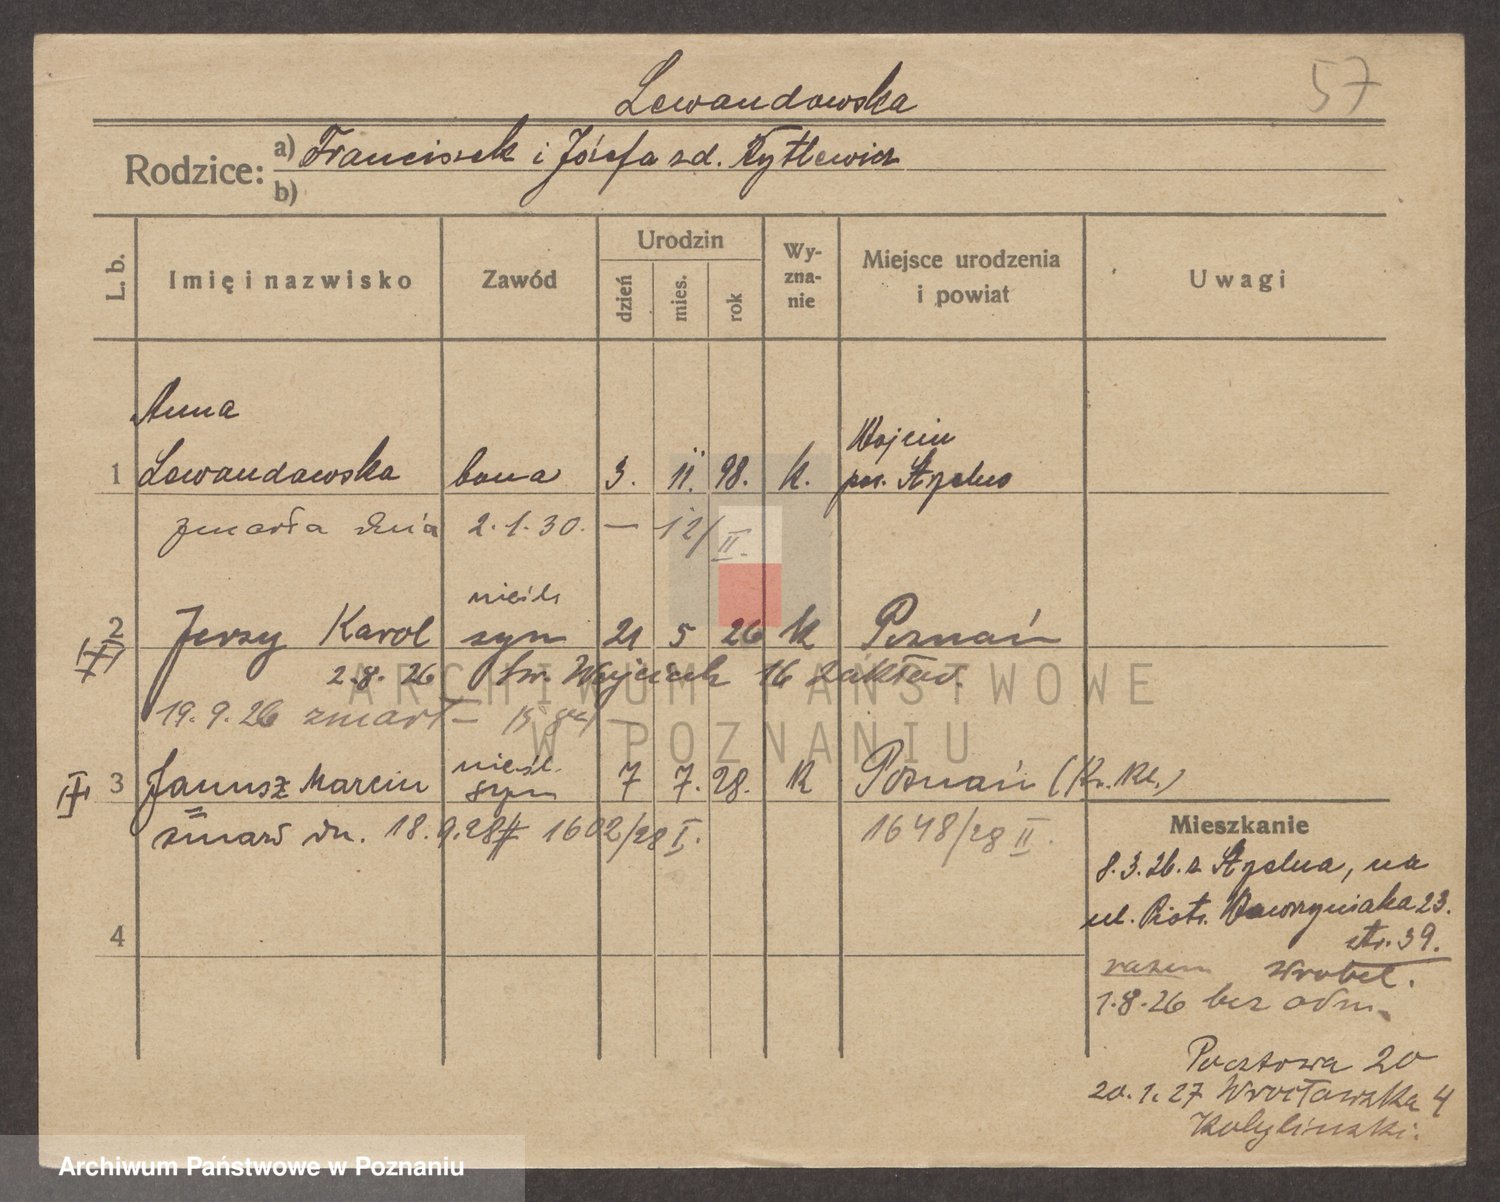 57
Lewandowska
Rodzice: a) Franciszek i Józefa zd. Kytlewicz
b)
L. b.
Imię i nazwisko
Zawód
Urodzin
dzień
mies.
rok
Wy-
zna-
nie
Miejsce urodzenia
i powiat
Uwagi
Anna
1 Lewandowska bona 3. 11. 98. k. Wojcin
pow. Strzelno
zmarła dnia 2.1.30. — 12/II.
nieśl.
2 Jerzy Karol syn 21 5 26 k Poznań
2.8.26 św. Wojciech 16 Zakład.
19.9.26 zmarł —
nieśl.
3 Janusz Marcin syn 7 7. 28. k Poznań (Kr. Kl.)
zmarł dn. 18.9.28 # 1602/28 I. 1648/28 II.
4
Mieszkanie
8.3.26. z Strzelna, na
ul. Piotr. Wawrzyniaka 23.
str. 39.
razem Wrobel.
1.8.26 bez odm.
Pocztowa 20
20.1.27 Wrocławska 4
Kobyliński.
ARCHIWUM PAŃSTWOWE
W POZNANIU
Archiwum Państwowe w Poznaniu